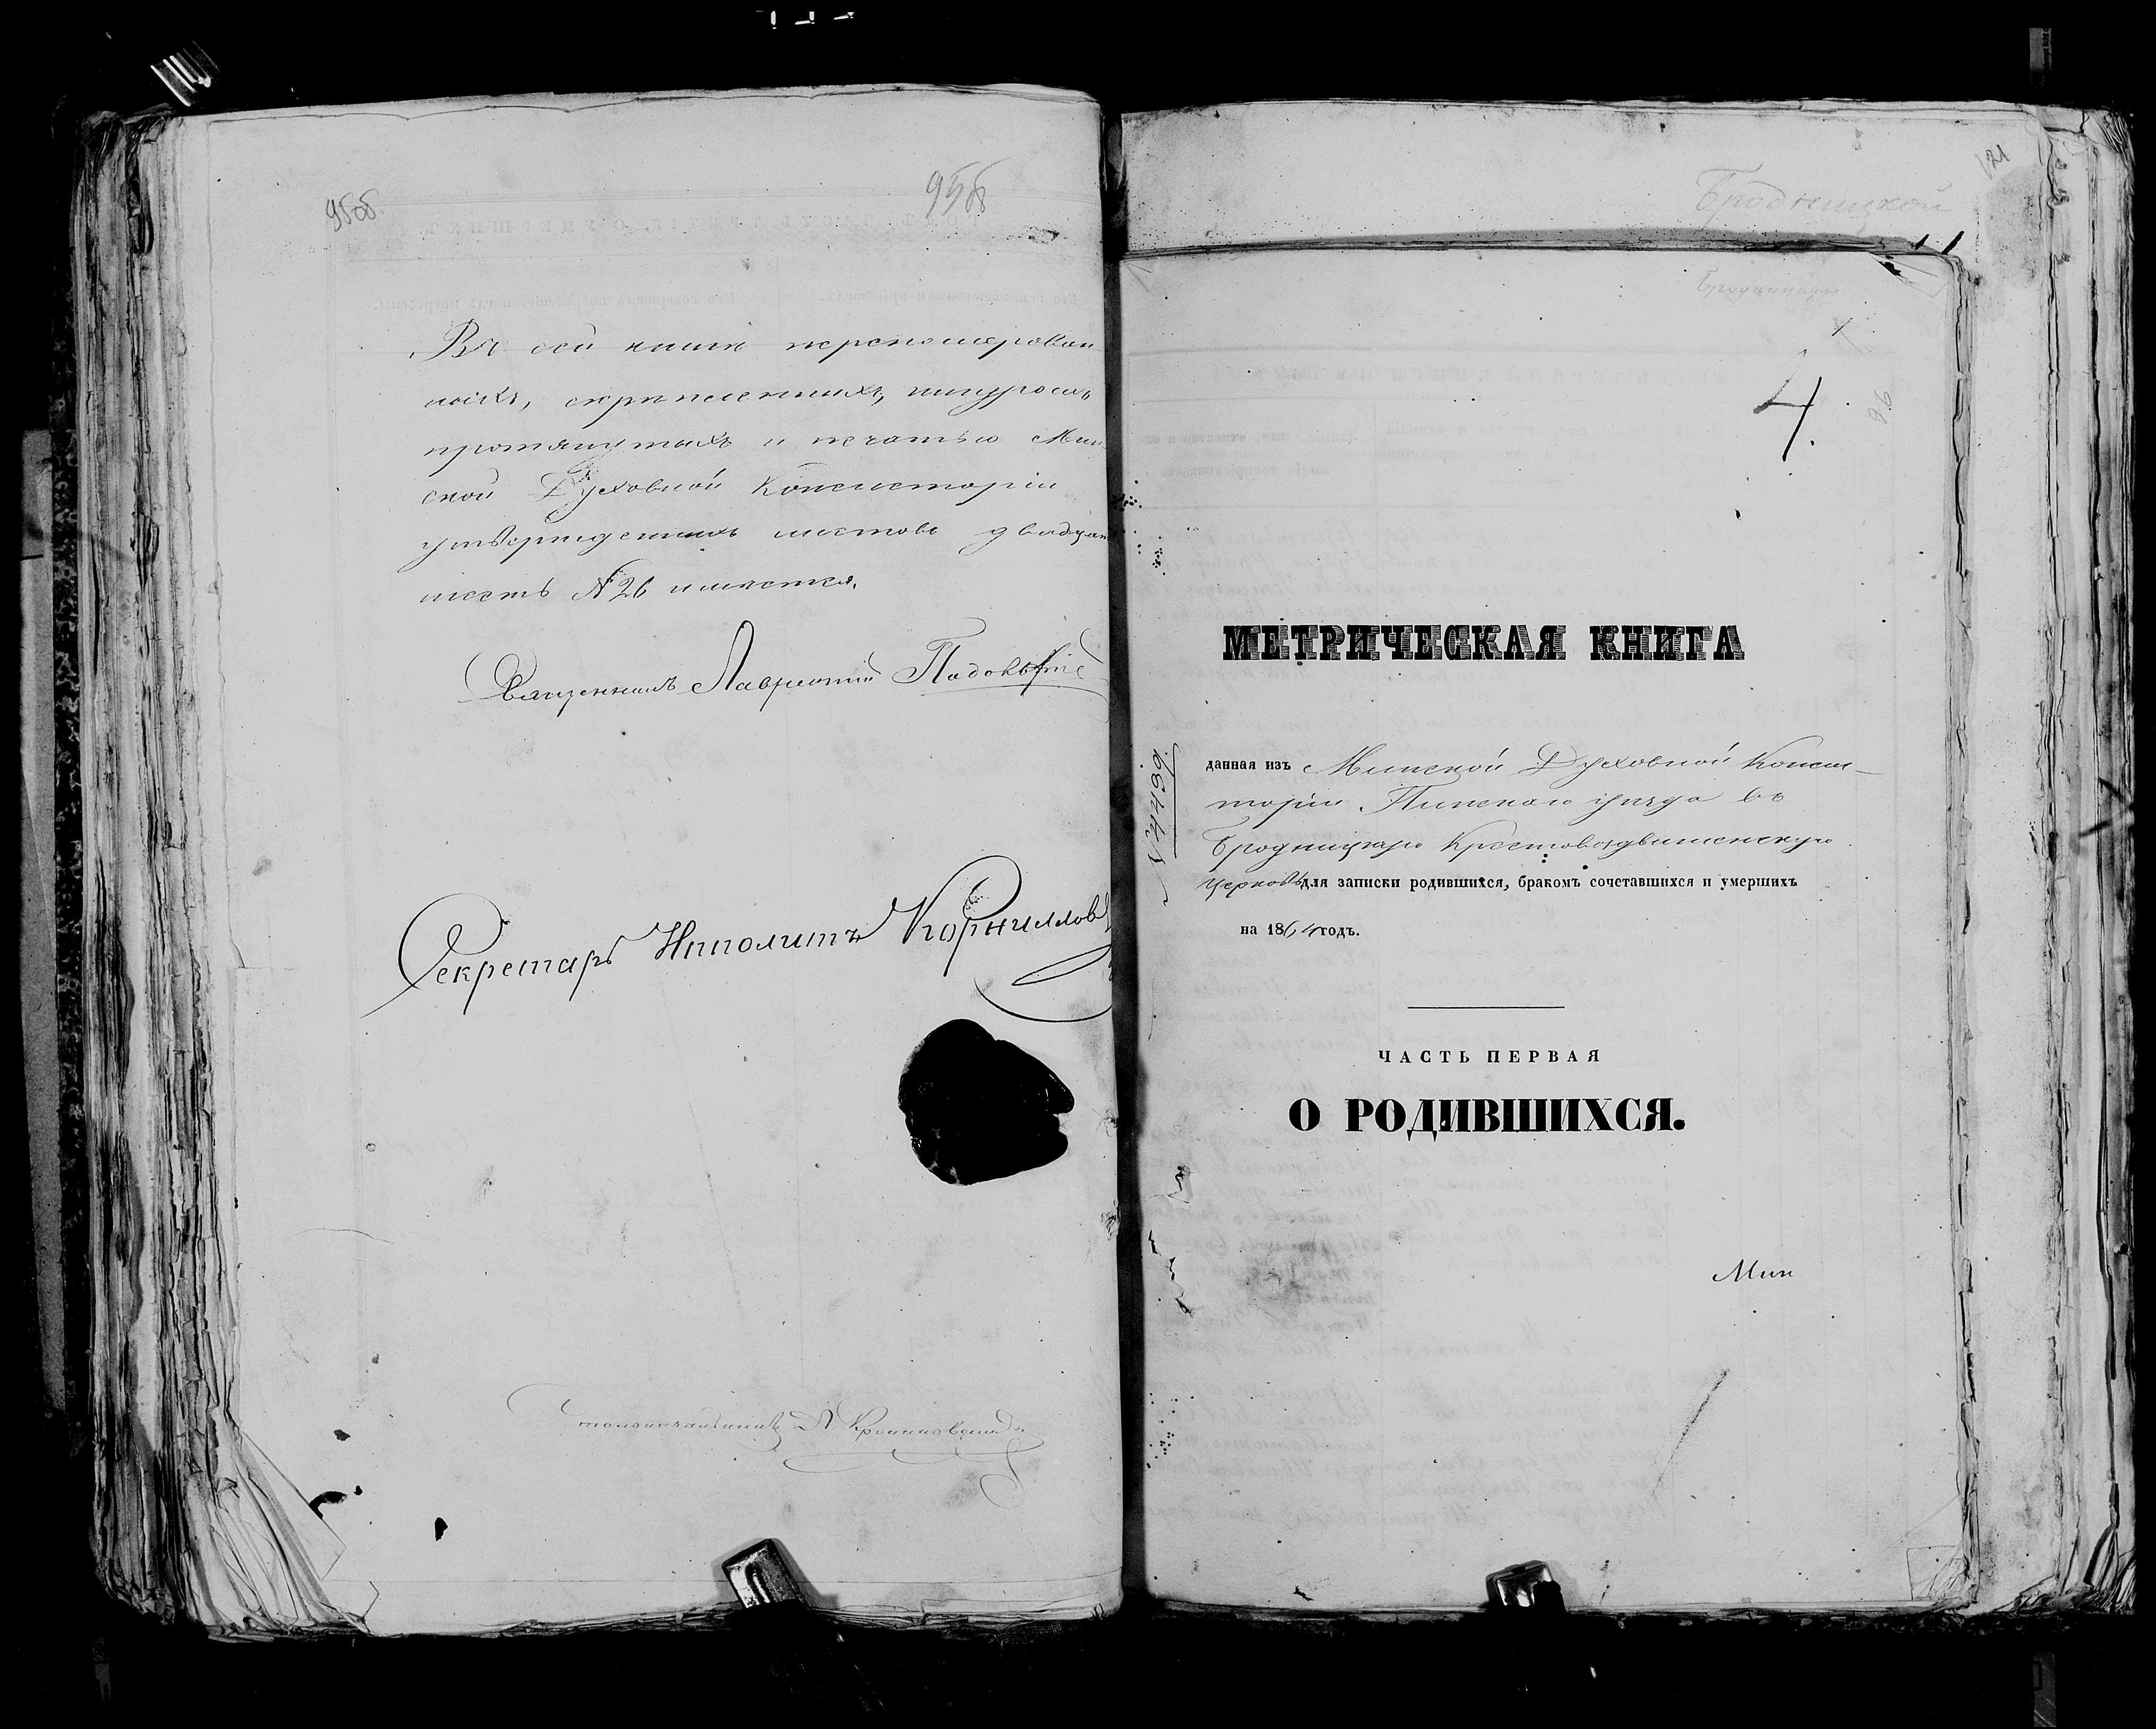 95об
95об
Въ сей книгѣ перенумерован
ныхъ, скрѣпленныхъ, шнуромъ
протянутыхъ и печатью Мин
ской Духовной Консисторіи
утвержденныхъ листовъ двадцать
шесть № 26 имѣется.
Священникъ Лаврентій
Секретарь Ипполитъ Корниллов
Столоначальникъ
121
Бродницкой
4.
96
МЕТРИЧЕСКАЯ КНИГА
№ 4489
данная изъ Минской Духовной Конси-
торіи Пинского уѣзда въ
Бродницкую Крестовоздвиженскую
церковь для записки родившихся, бракомъ сочетавшихся и умершихъ
на 1864 годъ.
ЧАСТЬ ПЕРВАЯ
О РОДИВШИХСЯ.
Мин